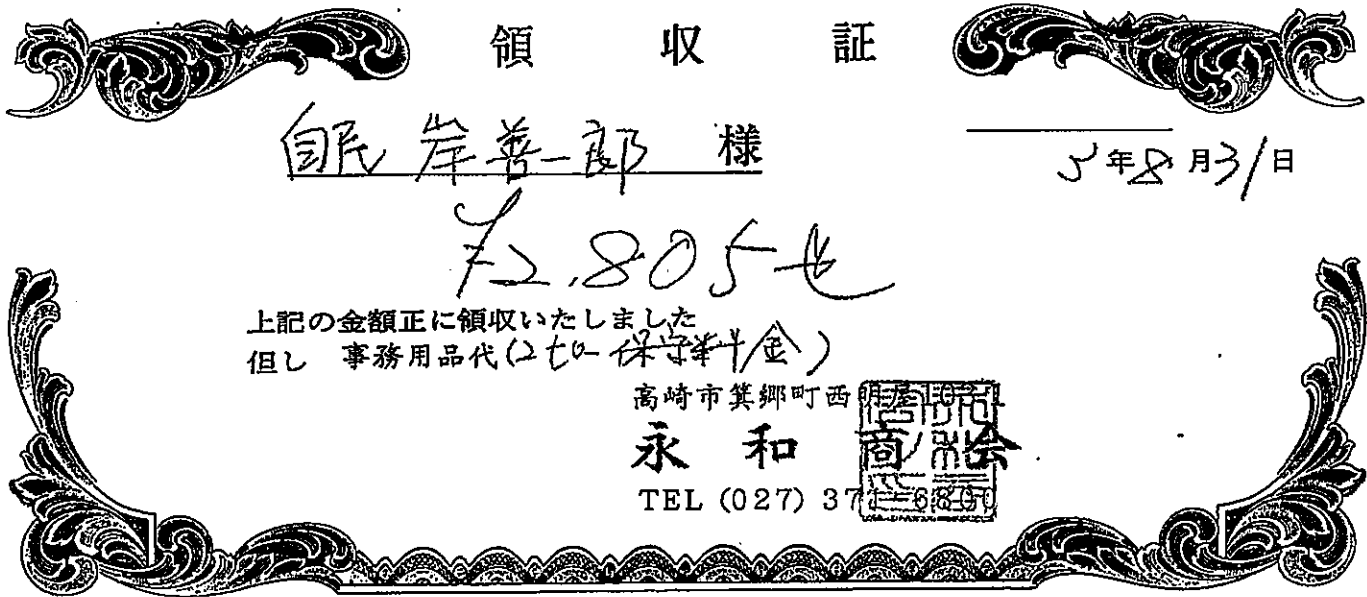 領収証
自民 岸善一郎 様
5年8月31日
¥2,805-也
上記の金額正に領収いたしました
但し 事務用品代(コピー保守料金)
高崎市箕郷町西明屋1021
永和商会
TEL (027) 371-6800